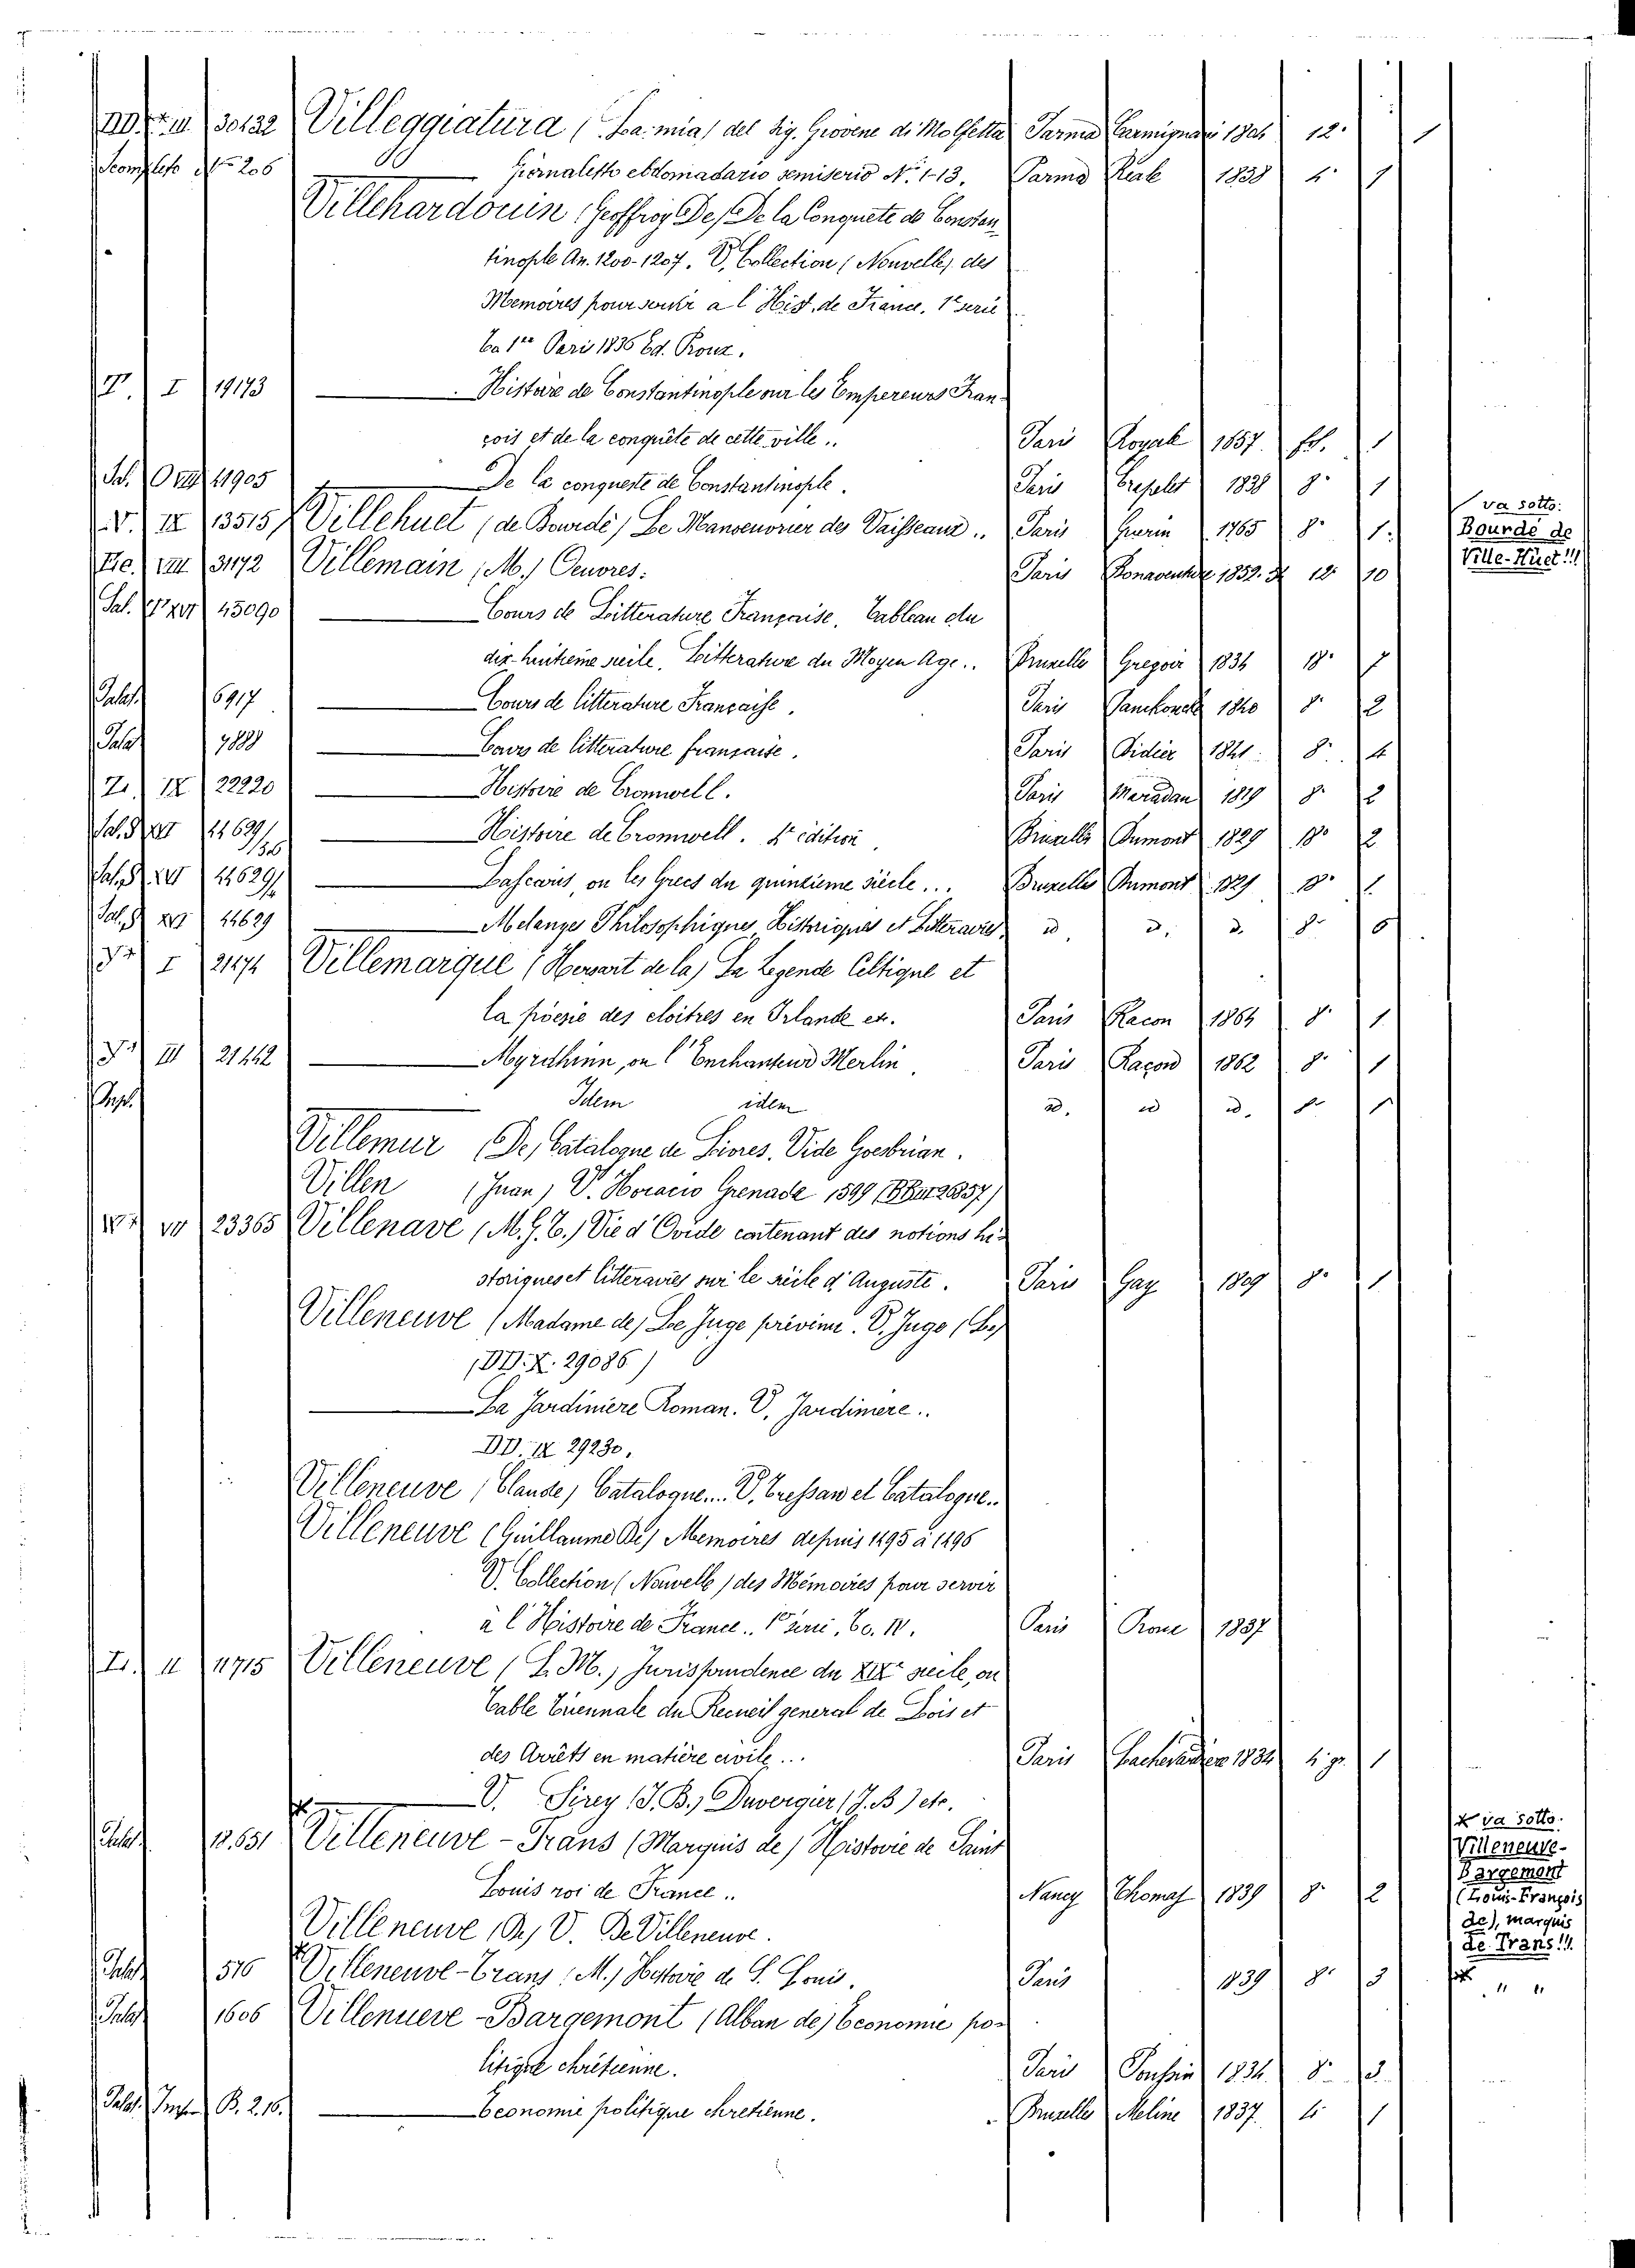 30132 Villeggiatura (La mia) del Sig. Giovene di Molfetta Parma Carmignani 12. 1
Scomplete N.º 206 Giornaletto ebdomadario semiserio N. 1-13. Parma Reale 1838 4. 1
Villehardouin (Geoffroy De) De la Conquete de Constan
tinople An. 1200-1207. V. Collection (Nouvelle) des
Memoires pour servir a l'Hist. de France. 1e serie
1836 Ed.
I 19173 Histoire de Constantinople sur les Empereurs Fran-
çois et de la conquête de cette ville.. Paris Royale 1657. fol. 1
11905 De la conqueste de Constantinople. Paris 1838 8. 1
V. IX 13515 Villehuet (de Bourdé) Le Manoeuvrier des Vaisseaux.. Paris Guerin 1765 8. 1.
va sotto:
Bourdé de
Ville-Hüet!!!
VIII 31172 Villemain (M.) Oeuvres: Paris Bonaventure 12. 10
Sal. XVI 45090 Cours de Litterature Française. Tableau du
dix-huitieme siecle. Litterature du Moyen Age.. Bruxelles Gregoir 1836 18.
Palat. 6917 Cours de litterature Française. Paris Panckoucke 1840 8. 2
Palat. 7888 Cours de litterature française. Paris Didier 1841. 8. 4
Z. IX 22220 Histoire de Cromwell. Paris Maradan 1819 8. 2
Histoire de Cromwell. édition. Bruxelles Dumont 1829 18. 2
Lascaris, ou les Grecs du quinzieme siecle... Bruxelles Dumont 18.
Melanges Philosophiques, Historiques et Litteraires id. 8.
I Villemarque (Hersart de la) La Legende Celtique et
la pöesie des cloitres en Irlande ec. Paris Racon 1864 8. 1
III 21442 Myrdhinn, ou l'Enchanteur Merlin. Paris Raçon 1862 8. 1
Idem idem 1
Villemur (De) Catalogue de Livres. Vide Goesbrian.
Villen (Juan) V. Horacio Grenade 1599
VII 23365 Villenave (M. G. T.) Vie d'Ovide contenant des notions hi-
storiques et litteraires sur le siècle d'Auguste. Paris Gay 1809 8. 1
Villeneuve (Madame de) Le Juge prévenu. V. Juge (Le)
(DD. X. 29086)
La Jardiniere Roman. V. Jardiniere..
DD. IX 29230.
Villeneuve (Claude) Catalogue... V. Tressan et Catalogue..
Villeneuve (Guillaume De) Memoires depuis 1495 à 1496
V. Collection (Nouvelle) des Mémoires pour servir
à l'Histoire de France.. 1e serie. To. IV. Paris 1837
II 11715 Villeneuve (L. M.) Jurisprudence du XIXe siecle, ou
Table Triennale du Recueil general de Lois et
des Arrêts en matière civile... Paris Bachevardiere 1834 4. gr. 1
V. Sirey (J. B.) Duvergier (J. B) etc.
Palat. 12.651 Villeneuve-Trans (Marquis de) Histoire de Saint
Louis roi de France.. Nancy Thomas 1839 8. 2
va sotto:
Villeneuve-
Bargemont
(Louis-François
de), marquis
de Trans!!!
Villeneuve (De) V. De Villeneuve.
Palat. 576 Villeneuve-Trans (M.) Histoire de S. Louis. Paris 1839 8. 3 " "
Palat. 1606 Villenueve-Bargemont (Alban de) Economie po-
litique chrétienne. Paris 1834. 8. 3
Palat. B. 216. Economie politique chretienne. Bruxelles Meline 1837. 4 1